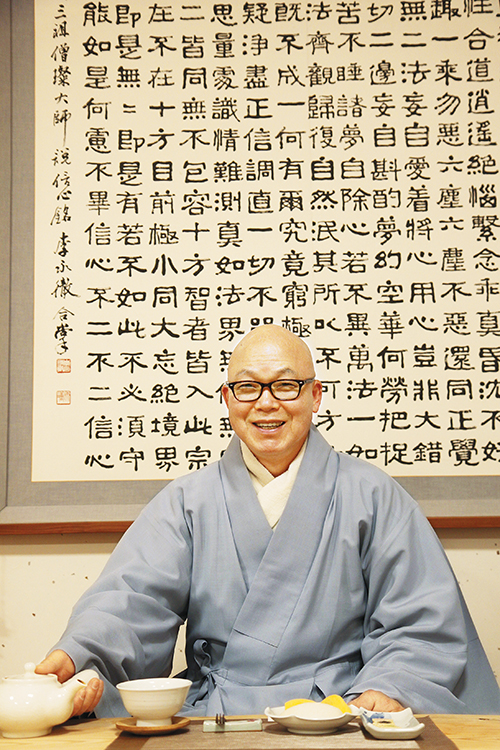 性合道逍遙絕惱繫念乖真昏沈不好
趣一乘勿惡六塵六塵不惡還同正覺
無二法妄自愛着將心用心豈非大錯
切二邊妄自斟酌夢幻空華何勞把捉
若不睡諸夢自除心若不異萬法一如
法齊觀歸復自然泯其所以不可方
既不成一何有爾究竟窮極
疑淨盡正信調直一切不
思量處識情難測真如法界無
二皆同無不包容十方智者皆入此宗
在不在十方目前極小同大忘絕境界
即是無〻即是有若不如此不必須守
能如是何慮不畢信心不二不二信心
三祖僧璨大師 說信心銘 李永徹 合掌